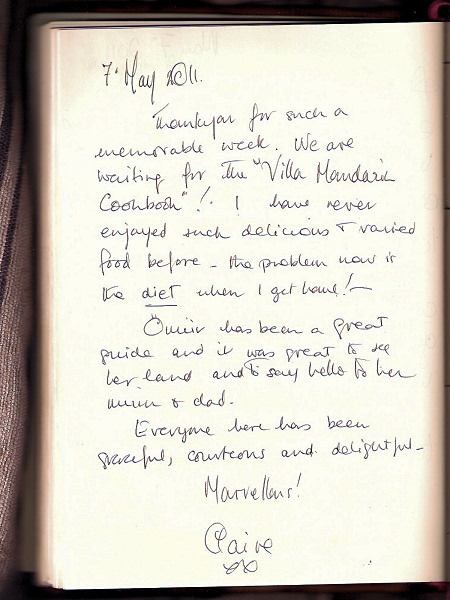 7 May 2011.
Thankyou for such a
memorable week. We are
waiting for the "Villa Mandarin
Cookbook"! I have never
enjoyed such delicious & varied
food before - the problem now is
the diet when I get home! -
has been a great
guide and it was great to see
her land and to say hello to her
mum & dad.
Everyone here has been
graceful, courteous and delightful -
Marvellous!
Claire